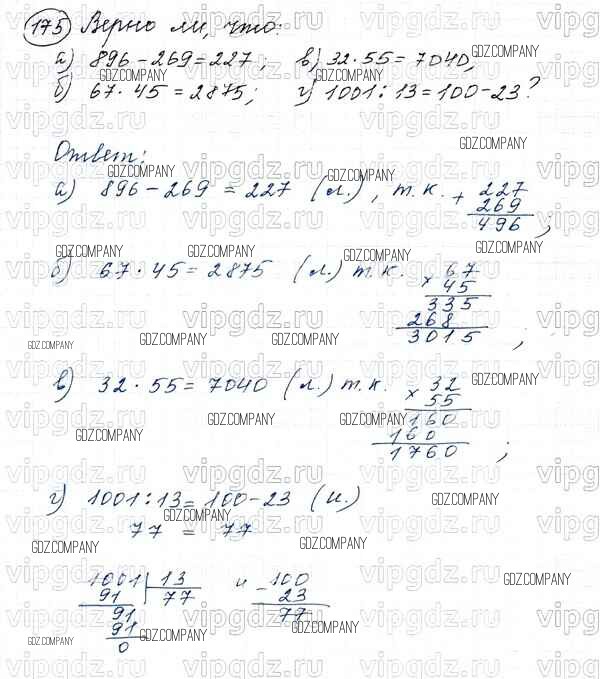 175 Верно ли, что:
а) 896 - 269 = 227; в) 32 · 55 = 7040;
б) 67 · 45 = 2875; г) 1001 : 13 = 100 - 23?
Ответ:
а) 896 - 269 = 227 (л.), т.к. + 227
269
496;
б) 67 · 45 = 2875 (л.) т.к. × 67
45
335
268
3015;
в) 32 · 55 = 7040 (л.) т.к. × 32
55
160
160
1760;
г) 1001 : 13 = 100 - 23 (и.)
77 = 77
1001 | 13 и - 100
91 77 23
91 77
91
0
vipgdz.ru
GDZ.COMPANY